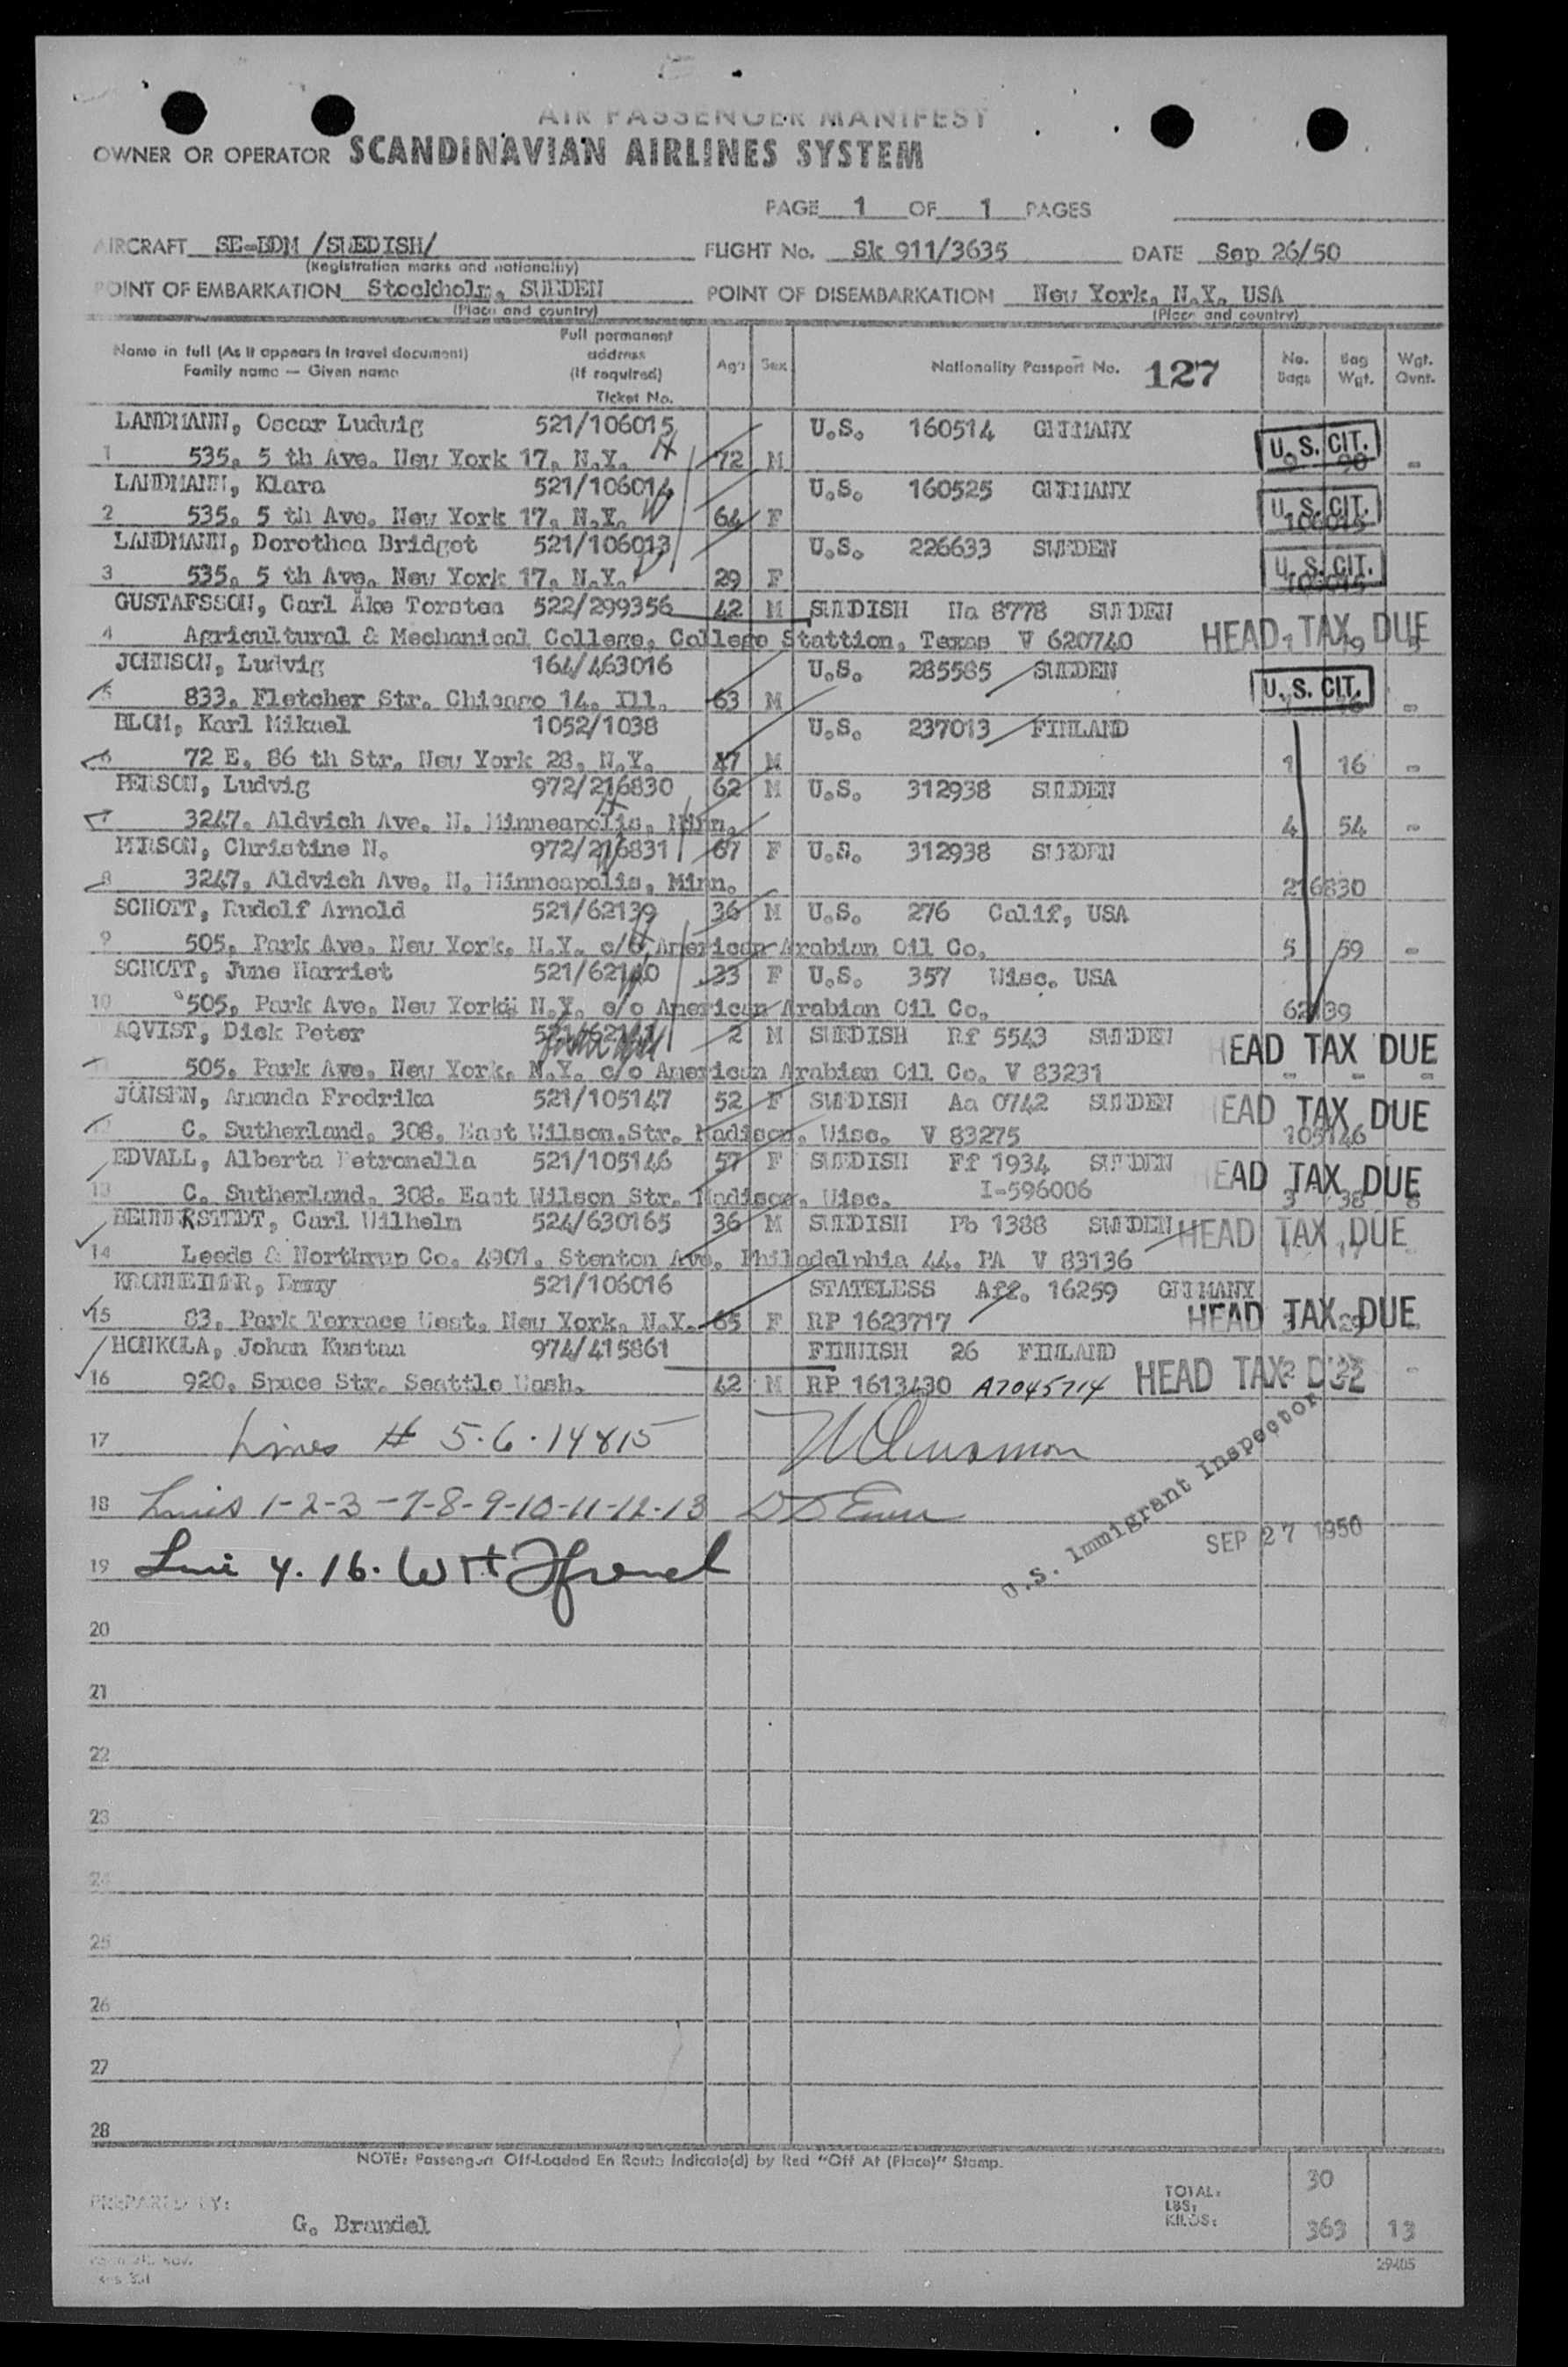 AIR PASSENGER MANIFEST
OWNER OR OPERATOR SCANDINAVIAN AIRLINES SYSTEM
PAGE 1 OF 1 PAGES
AIRCRAFT SE-BDM /SWEDISH/ FLIGHT No. Sk 911/3635 DATE Sep 26/50
(Registration marks and nationality)
POINT OF EMBARKATION Stockholm, SWEDEN POINT OF DISEMBARKATION New York, N.Y. USA
(Place and country) (Place and country)
Name in full (As it appears in travel document) Family name — Given name Full permanent address (If required) Ticket No. Age Sex Nationality Passport No. 127 No. Bags Bag Wgt. Wgt. Ovnt.
LANDMANN, Oscar Ludwig 521/106015 U.S. 160514 GERMANY
1 535, 5 th Ave. New York 17, N.Y. 72 M U.S. CIT. -
LANDMANN, Klara 521/106014 U.S. 160525 GERMANY
2 535, 5 th Ave. New York 17, N.Y. 64 F U.S. CIT. 106015
LANDMANN, Dorothea Bridget 521/106013 U.S. 226633 SWEDEN
3 535, 5 th Ave. New York 17, N.Y. 29 F U.S. CIT. 106015
GUSTAFSSON, Carl Åke Torsten 522/299356 42 M SWEDISH Na 8778 SWEDEN
4 Agricultural & Mechanical College, College Stattion, Texas V 620740 HEAD TAX DUE
JOHNSON, Ludvig 164/463016 U.S. 285585 SWEDEN
5 833, Fletcher Str. Chicago 14, Ill. 63 M U.S. CIT. -
BLOM, Karl Mikael 1052/1038 U.S. 237013 FINLAND
6 72 E. 86 th Str. New York 28, N.Y. 47 M 1 16 -
PERSON, Ludvig 972/216830 62 M U.S. 312938 SWEDEN
7 3247, Aldvich Ave. N. Minneapolis, Minn. 4 54 -
PERSON, Christine N. 972/216831 67 F U.S. 312938 SWEDEN
8 3247, Aldvich Ave. N. Minneapolis, Minn. 216830
SCHOTT, Rudolf Arnold 521/62139 36 M U.S. 276 Calif, USA
9 505, Park Ave. New York, N.Y. c/o American Arabian Oil Co. 5 59 -
SCHOTT, June Harriet 521/62140 33 F U.S. 357 Wisc. USA
10 505, Park Ave. New York, N.Y. c/o American Arabian Oil Co. 62139
AQVIST, Dick Peter 2 M SWEDISH Rf 5543 SWEDEN HEAD TAX DUE
11 505, Park Ave. New York, N.Y. c/o American Arabian Oil Co. V 83231 - - -
JÖNSEN, Amanda Fredrika 521/105147 52 F SWEDISH Aa 0742 SWEDEN HEAD TAX DUE
12 C. Sutherland, 308, East Wilson.Str. Madison, Wisc. V 83275 105146
EDVALL, Alberta Petronella 521/105146 57 F SWEDISH Ff 1934 SWEDEN HEAD TAX DUE
13 C. Sutherland, 308, East Wilson Str. Madison, Wisc. I-596006 3 38 8
Carl Wilhelm 524/630165 36 M SWEDISH Pb 1388 SWEDEN HEAD TAX DUE
14 Leeds & Northrup Co. 4901, Stenton Ave. Philadelphia 44, PA V 83136 1 17 -
KRONHEIMER, Emmy 521/106016 STATELESS Aff. 16259 GERMANY
15 83, Park Terrace West, New York, N.Y. 65 F RP 1623717 HEAD TAX DUE
HONKOLA, Johan Kustaa 974/415861 FINNISH 26 FINLAND
16 920, Space Str. Seattle Wash. 42 M RP 1613430 A7045714 HEAD TAX DUE -
17 Lines # 5-6-14 & 15
18 Lines 1-2-3-7-8-9-10-11-12-13
U.S. Immigrant Inspector
SEP 27 1950
19 Line 4. 16.
20
21
22
23
24
25
26
27
28
NOTE: Passengers Off-Loaded En Route Indicate(d) by Red "Off At (Place)" Stamp.
PREPARED BY: G. Brandel
TOTAL: 30
LBS:
KILOS: 363 13
29405